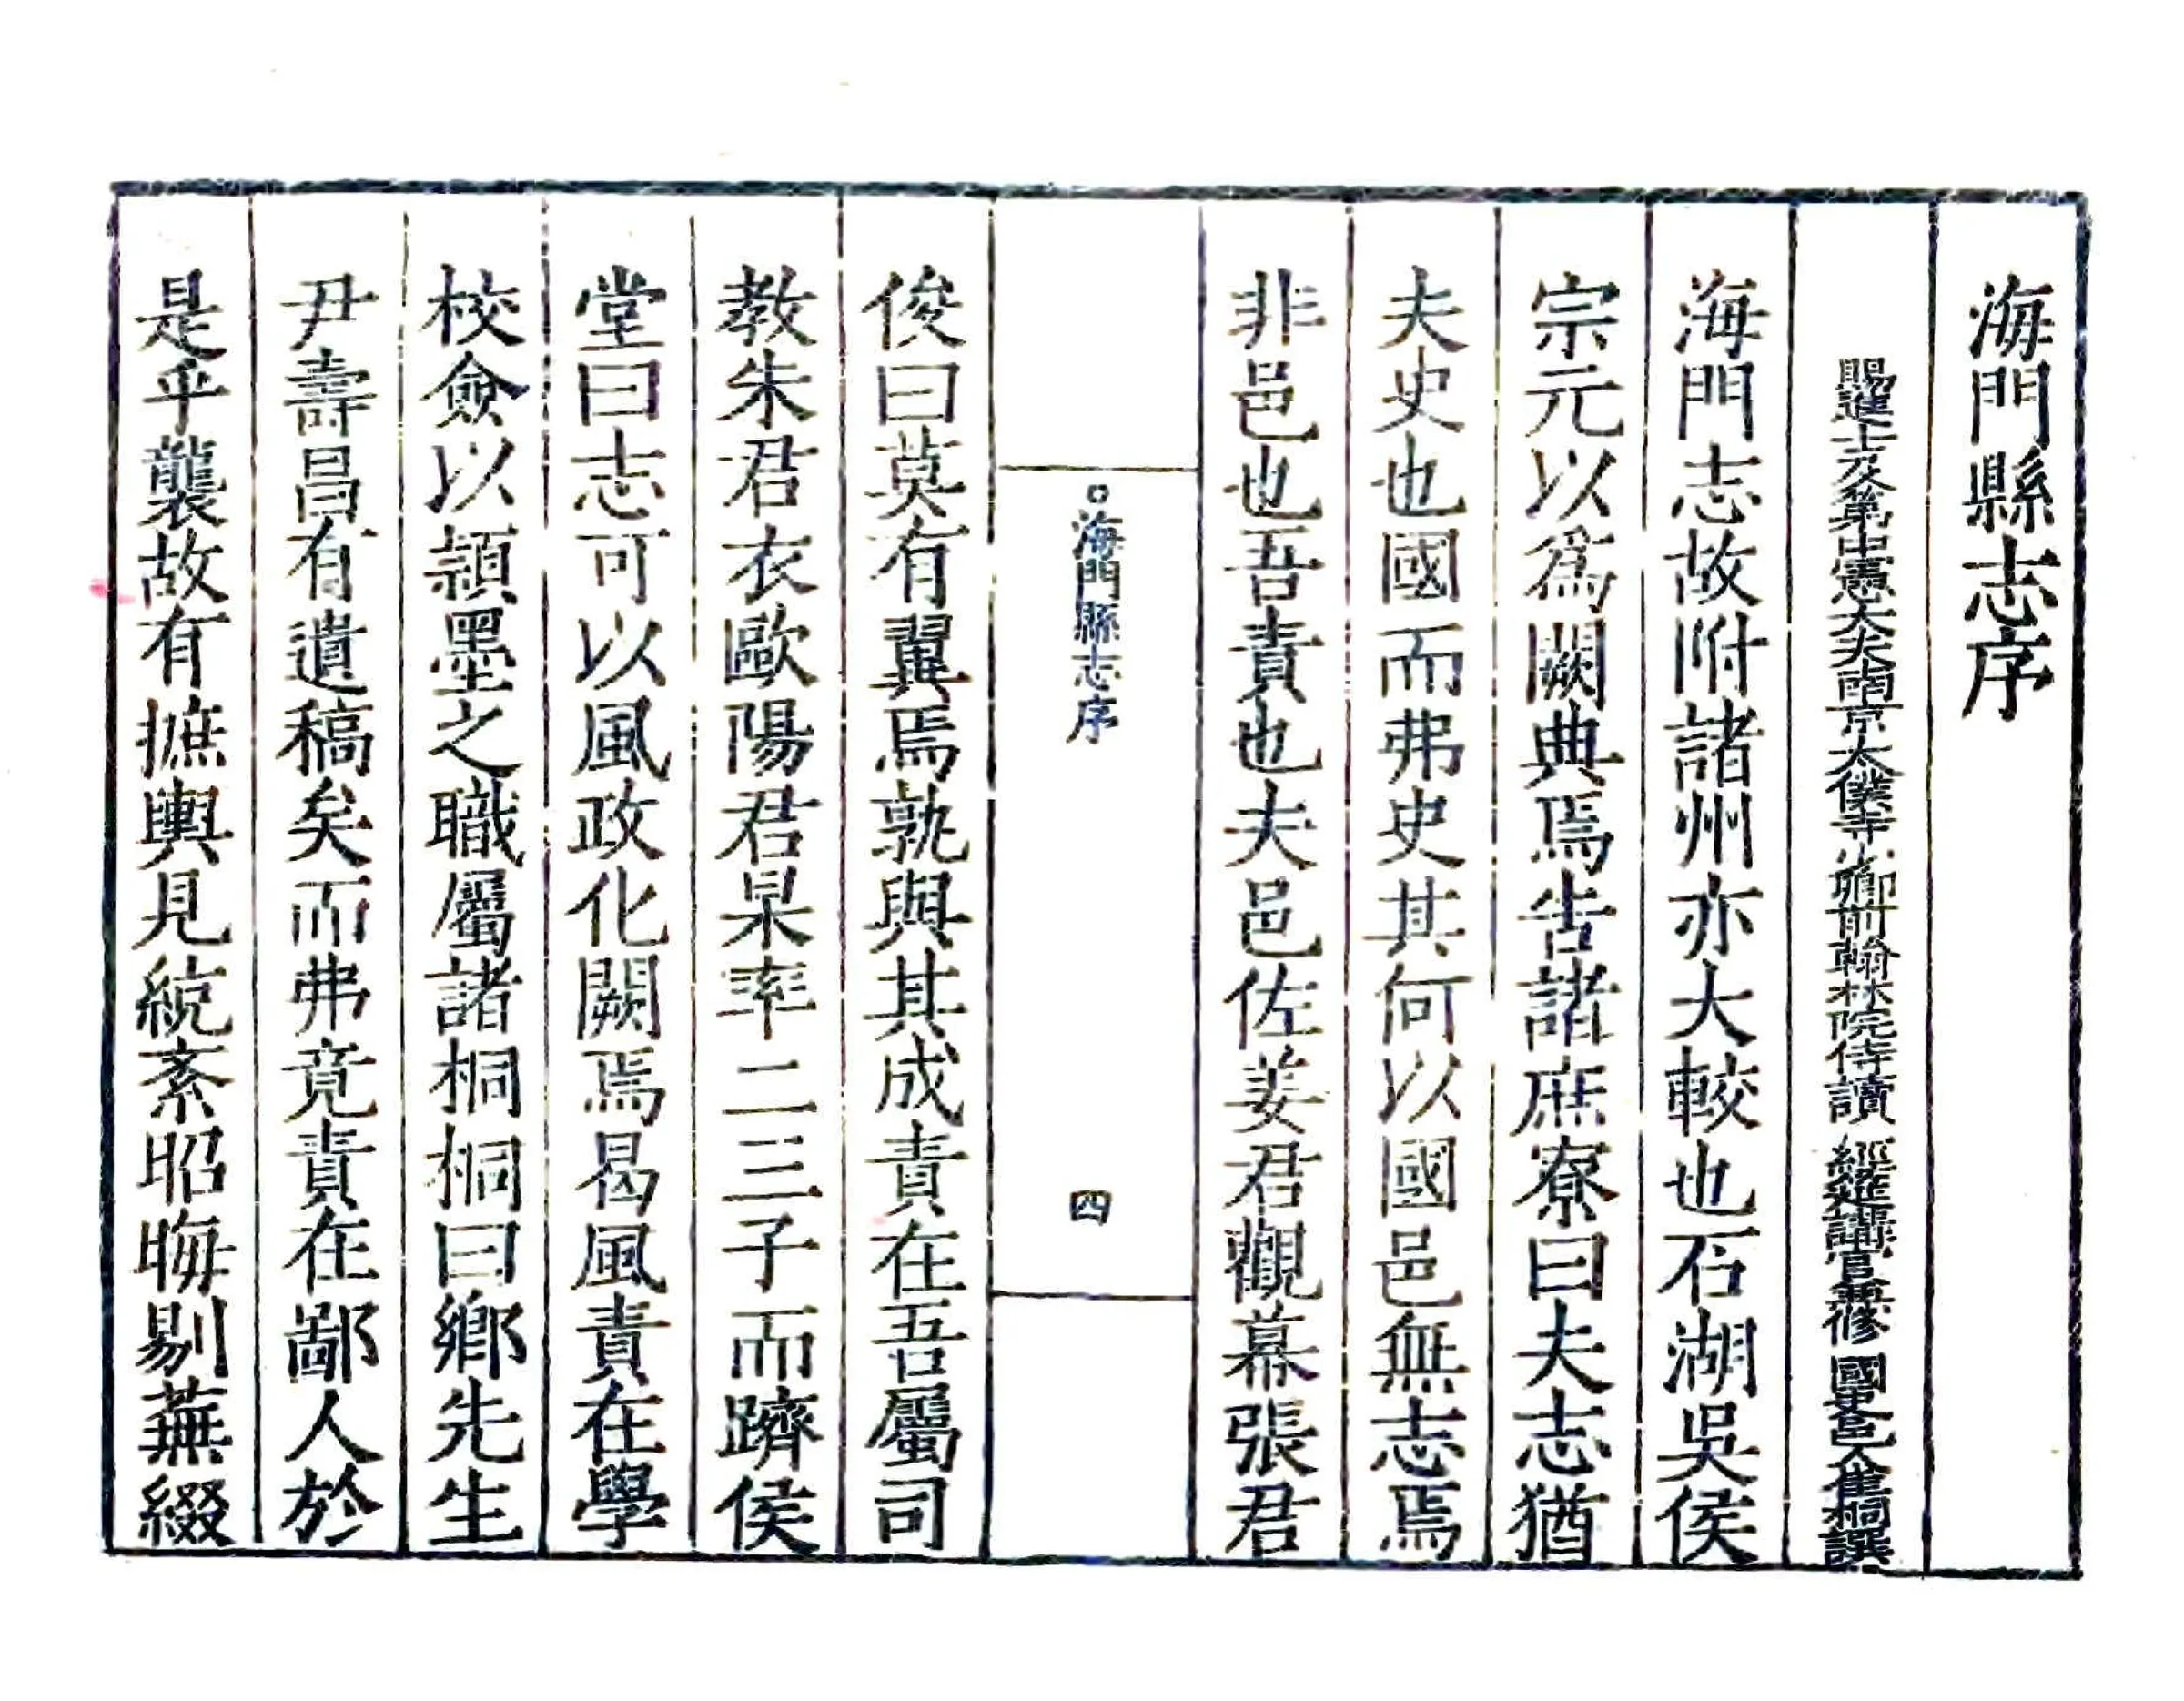 海門縣志序
賜進士及第中憲大夫南京太僕寺少卿前翰林院侍讀 經筵講官兼修 國史邑人崔桐譔
海門志故附諸州亦大較也石湖吳侯
宗元以為闕典焉告諸庶寮曰夫志猶
夫史也國而弗史其何以國邑無志焉
非邑也吾責也夫邑佐姜君觀幕張君
海門縣志序
四
俊曰莫有翼焉孰與其成責在吾屬司
教朱君衣歐陽君杲率二三子而躋侯
堂曰志可以風政化闕焉曷風責在學
校僉以頴墨之職屬諸桐桐曰鄉先生
尹壽昌有遺稿矣而弗竟責在鄙人於
是乎襲故有摭輿見統紊昭晦剔蕪綴